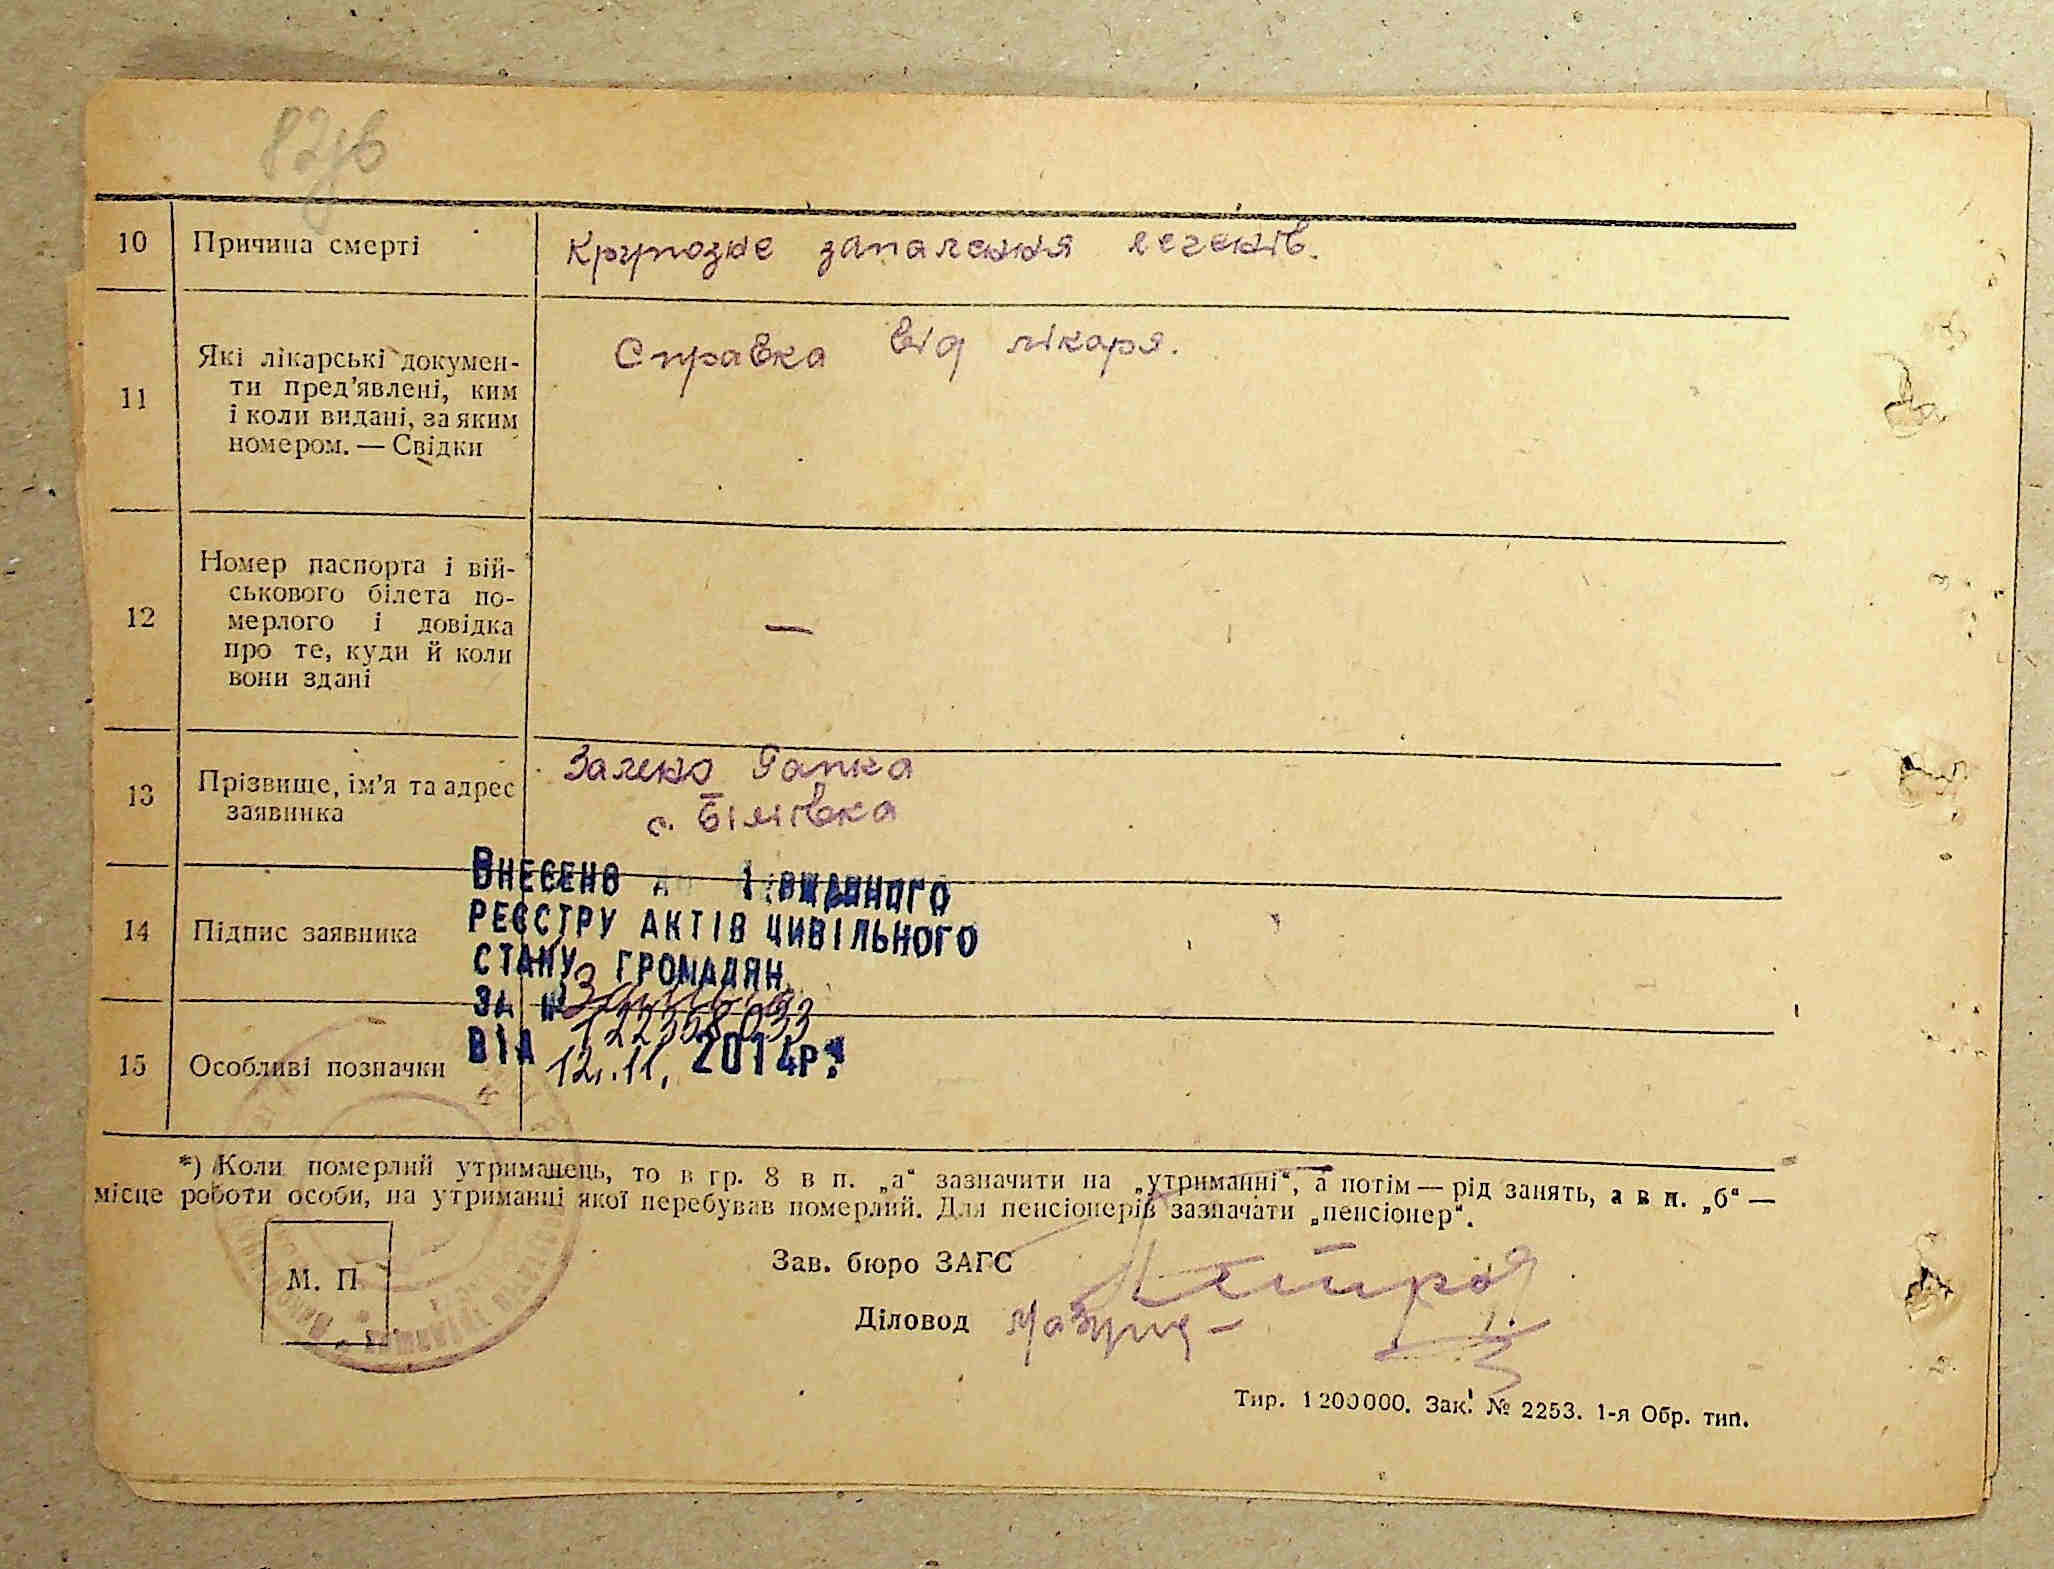 82зв
10 Причина смерті Крупозне запалення легенів.
11 Які лікарські докумен-
ти пред'явлені, ким
і коли видані, за яким
номером. — Свідки
Справка від лікаря.
12 Номер паспорта і вій-
ськового білета по-
мерлого і довідка
про те, куди й коли
вони здані
—
13 Прізвище, ім'я та адрес
заявника
Гапка
с. Білівка
ВНЕСЕНО ДО ДЕРЖАВНОГО
РЕЄСТРУ АКТІВ ЦИВІЛЬНОГО
СТАНУ ГРОМАДЯН
ЗА №
122358033
ВІД 12.11. 2014р.
14 Підпис заявника
15 Особливі позначки
*) Коли померлий утриманець, то в гр. 8 в п. „а“ зазначити на „утриманні“, а потім — рід занять, а в п. „б“ —
місце роботи особи, на утриманні якої перебував померлий. Для пенсіонерів зазначати „пенсіонер“.
М. П.
Зав. бюро ЗАГС
Діловод
Тир. 1200000. Зак. № 2253. 1-я Обр. тип.